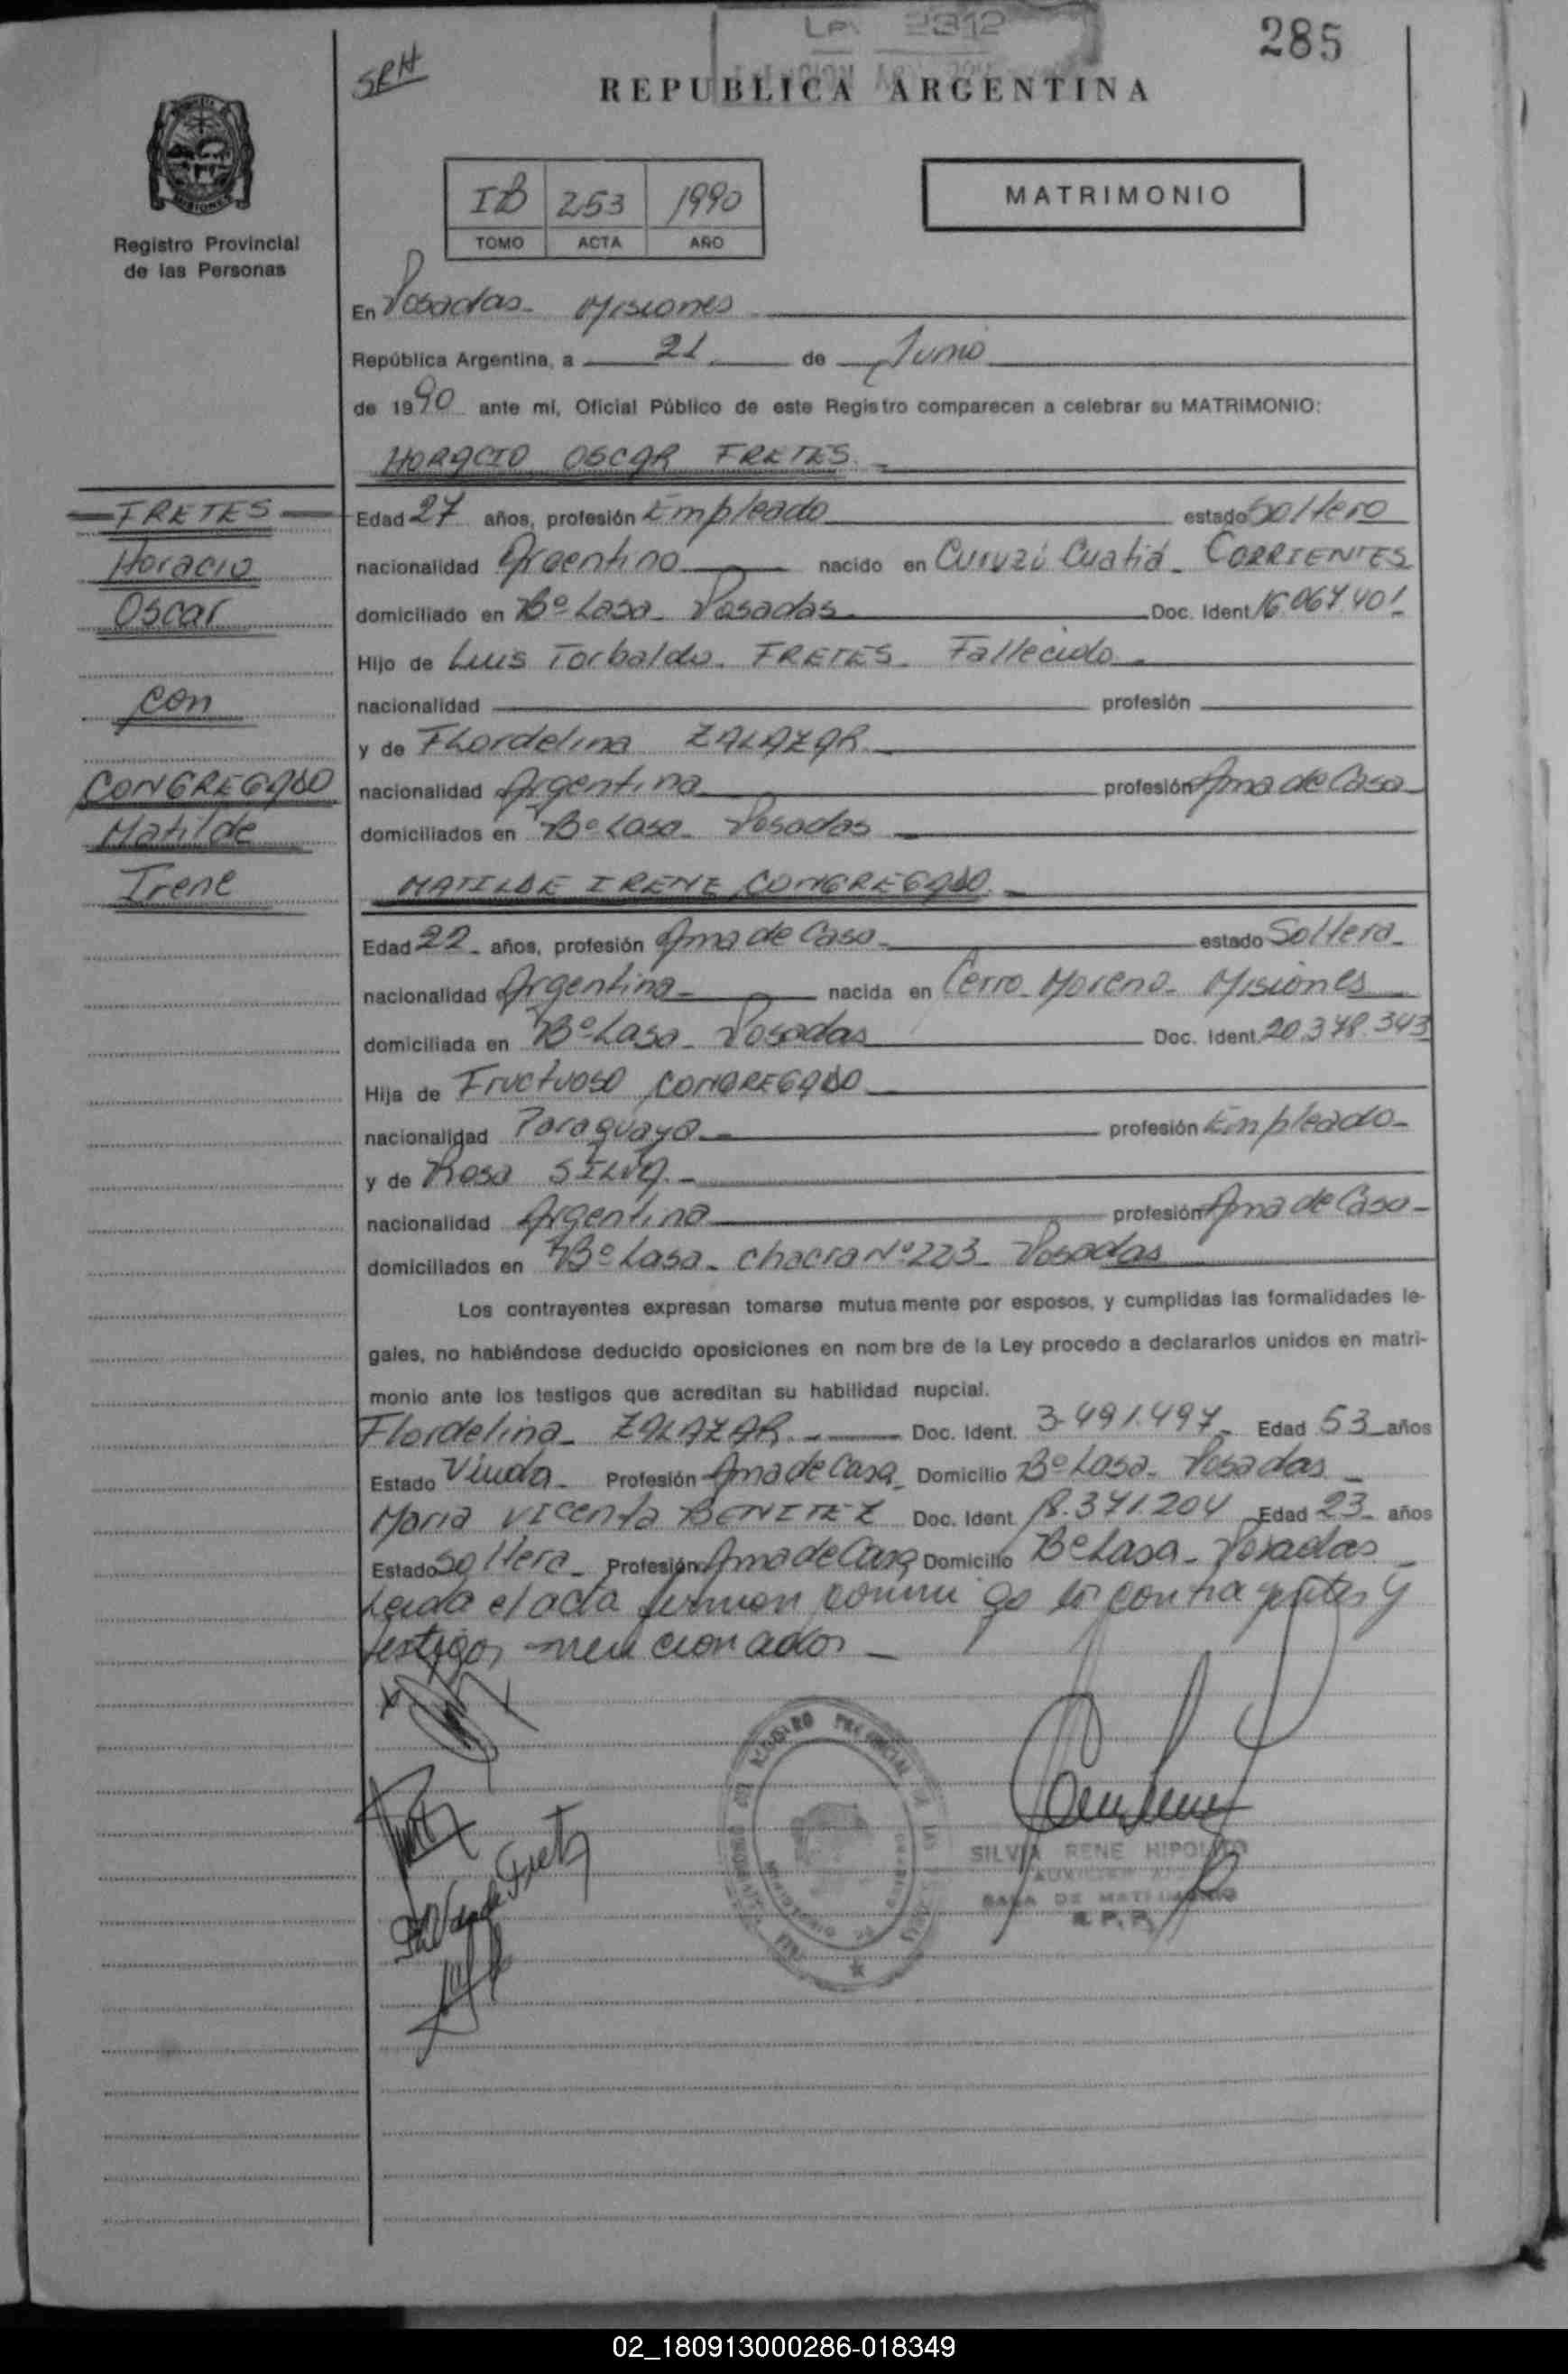 285
SRH
REPUBLICA ARGENTINA
Registro Provincial
de las Personas
IB 253 1990
TOMO ACTA AÑO
MATRIMONIO
En Posadas - Misiones
República Argentina, a 21 de Junio
de 1990 ante mi, Oficial Público de este Registro comparecen a celebrar su MATRIMONIO:
HORACIO OSCAR FRETES.-
FRETES
Horacio
Oscar
con
CONGREGADO
Matilde
Irene
Edad 27 años, profesión Empleado estado Soltero
nacionalidad Argentino nacido en Curuzú Cuatiá - CORRIENTES
domiciliado en Bº Lasa - Posadas Doc. Ident. 16.067.401
Hijo de Luis Torbaldo - FRETES - Fallecido -
nacionalidad profesión
y de FLordelina ZALAZAR.-
nacionalidad Argentina profesión Ama de Casa
domiciliados en Bº Lasa - Posadas -
MATILDE IRENE CONGREGADO.-
Edad 22 - años, profesión Ama de Casa - estado Soltera -
nacionalidad Argentina - nacida en Cerro Moreno - Misiones
domiciliada en Bº Lasa - Posadas Doc. Ident. 20.378.343
Hija de Fructuoso CONGREGADO
nacionalidad Paraguaya - profesión Empleado -
y de Rosa SILVA.-
nacionalidad Argentina profesión Ama de Casa -
domiciliados en Bº Lasa - chacra Nº 223 - Posadas
Los contrayentes expresan tomarse mutuamente por esposos, y cumplidas las formalidades le-
gales, no habiéndose deducido oposiciones en nombre de la Ley procedo a declararlos unidos en matri-
monio ante los testigos que acreditan su habilidad nupcial.
Flordelina - ZALAZAR.- Doc. Ident. 3.491.497 - Edad 53 años
Estado Viuda - Profesión Ama de Casa - Domicilio Bº Lasa - Posadas -
Maria Vicenta BENITEZ Doc. Ident. 18.371.204 Edad 23 - años
Estado Soltera - Profesión Ama de Casa Domicilio Bº Lasa - Posadas -
Leida el acta firman conmigo los contrayentes y
testigos mencionados -
SILVIA RENE HIPOLITO
SALA DE MATRIMONIO
R. P. P.
02_180913000286-018349